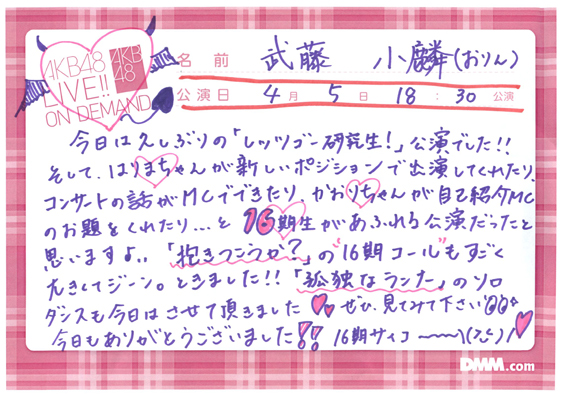 AKB48
LIVE!!
ON DEMAND
AKB
48
名前 武藤 小麟(おりん)
公演日 4月 5日 18:30 公演
今日は久しぶりの「レッツゴー研究生!」公演でした!!
そして、はりまちゃんが新しいポジションで出演してくれたり、
コンサートの話がMCでできたり、かおりちゃんが自己紹介MC
のお題をくれたり...と 16期生があふれる公演だったと
思いますよ。「抱きつこうか?」の"16期コール"もすごく
大きくてジーン。ときました!!「孤独なランナー」のソロ
ダンスも今日はさせて頂きました ぜひ、見てみて下さい
今日もありがとうございました!! 16期サイコー
DMM.com